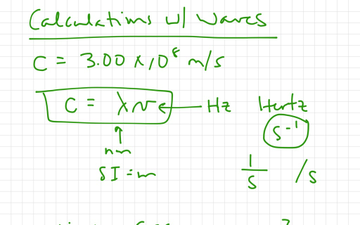 Calculations w/ Waves
C = 3.00 x 10⁸ m/s
C = λν ← Hz Hertz
↑ s⁻¹
nm
SI = m 1/s /s